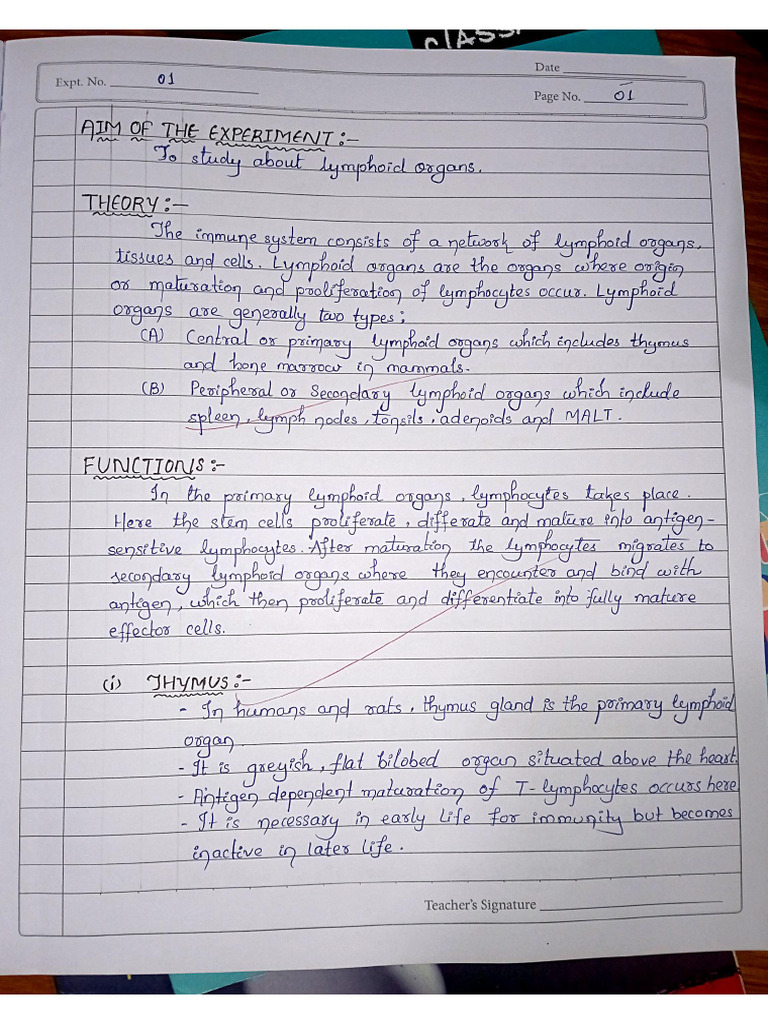 CLASS
Expt. No. 01
Date
Page No. 01
AIM OF THE EXPERIMENT:-
To study about lymphoid organs.
THEORY:-
The immune system consists of a network of lymphoid organs,
tissues and cells. Lymphoid organs are the organs where origin
or maturation and proliferation of lymphocytes occur. Lymphoid
organs are generally two types;
(A) Central or primary lymphoid organs which includes thymus
and bone marrow in mammals.
(B) Peripheral or Secondary lymphoid organs which include
spleen, lymph nodes, tonsils, adenoids and MALT.
FUNCTIONS:-
In the primary lymphoid organs, lymphocytes takes place.
Here the stem cells proliferate, differate and mature into antigen-
sensitive lymphocytes. After maturation the lymphocytes migrates to
secondary lymphoid organs where they encounter and bind with
antigen, which then proliferate and differentiate into fully mature
effector cells.
(i) THYMUS:-
- In humans and rats, thymus gland is the primary lymphoid
organ.
- It is greyish, flat bilobed organ situated above the heart.
- Antigen dependent maturation of T-lymphocytes occurs here
- It is necessary in early life for immunity but becomes
inactive in later life.
Teacher's Signature